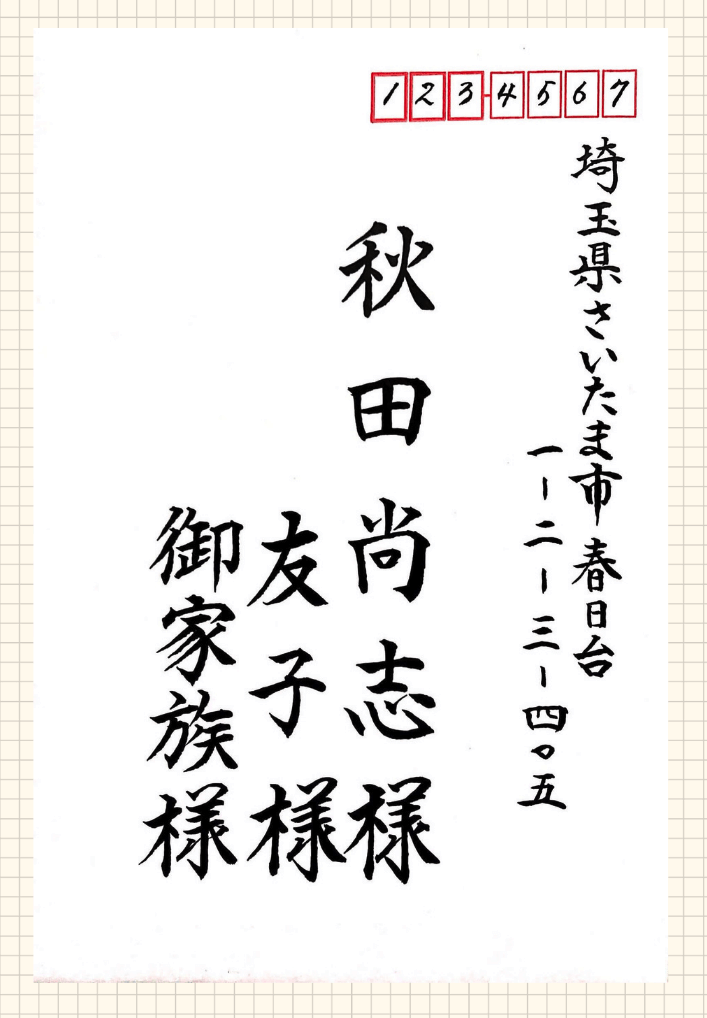 123-4567
埼玉県さいたま市春日台
一ー二ー三ー四〇五
秋田尚志様
友子様
御家族様